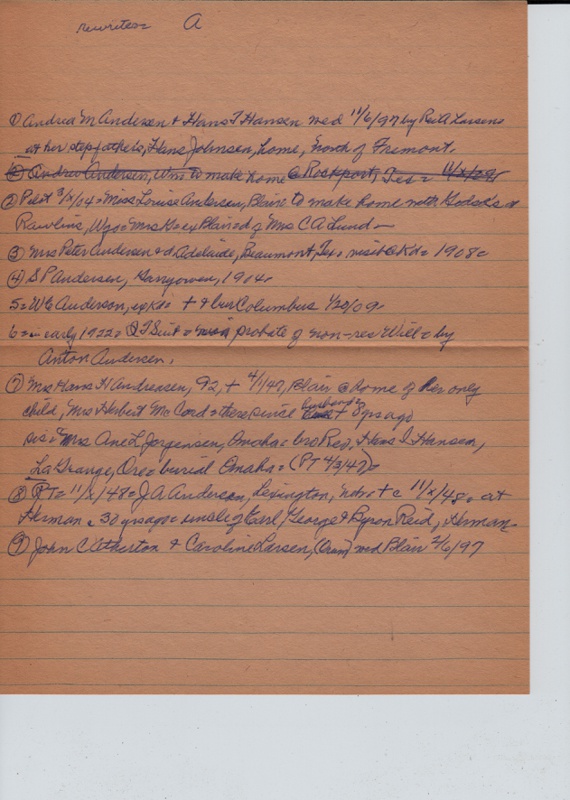 rewrites= A
① Andrea M Andersen & Hans T Hansen wed 11/6/97 by Rev A Larsen
at her stepfather's, Hans Johnsen, home, north of Fremont.
② Andrew Andersen, Wm to make home @ Rockport, Tex=
② Pilot 3/X/04= Miss Louise Andersen, Blair to make home with at
Rawlins, Wyo= Mrs K= ex Blair= d of Mrs C A Lund—
③ Mrs Peter Andersen & d. Adelaide, Beaumont, Tex. visit @ Kd= 1908=
④ S P Andersen, Garryowen, 1904.
5= W E Anderson, ex Kd= + & bur Columbus 1/20/09.
6= in early 1922= probate of non-res Will= by
Anton Andersen.
⑦ Mrs Hans H Andreasen, 92, + 4/1/47, Blair @ home of her only
child, Mrs Herbert McCord= there since husband + 8 yrs ago
sis= Mrs Ane L Jorgensen, Omaha= bro Rev. Hans I Hansen,
LaGrange, Ore= burial Omaha= (PT 4/3/47)=
⑧ PT= 11/X/48= J A Andersen, Lexington, Nebr. + c 11/X/48= at
Herman c 30 yrs ago= uncle of Earl, George & Byron Reid, Herman.
⑨ John C Etherton & Caroline Larsen, (Orum) wed Blair 2/6/97